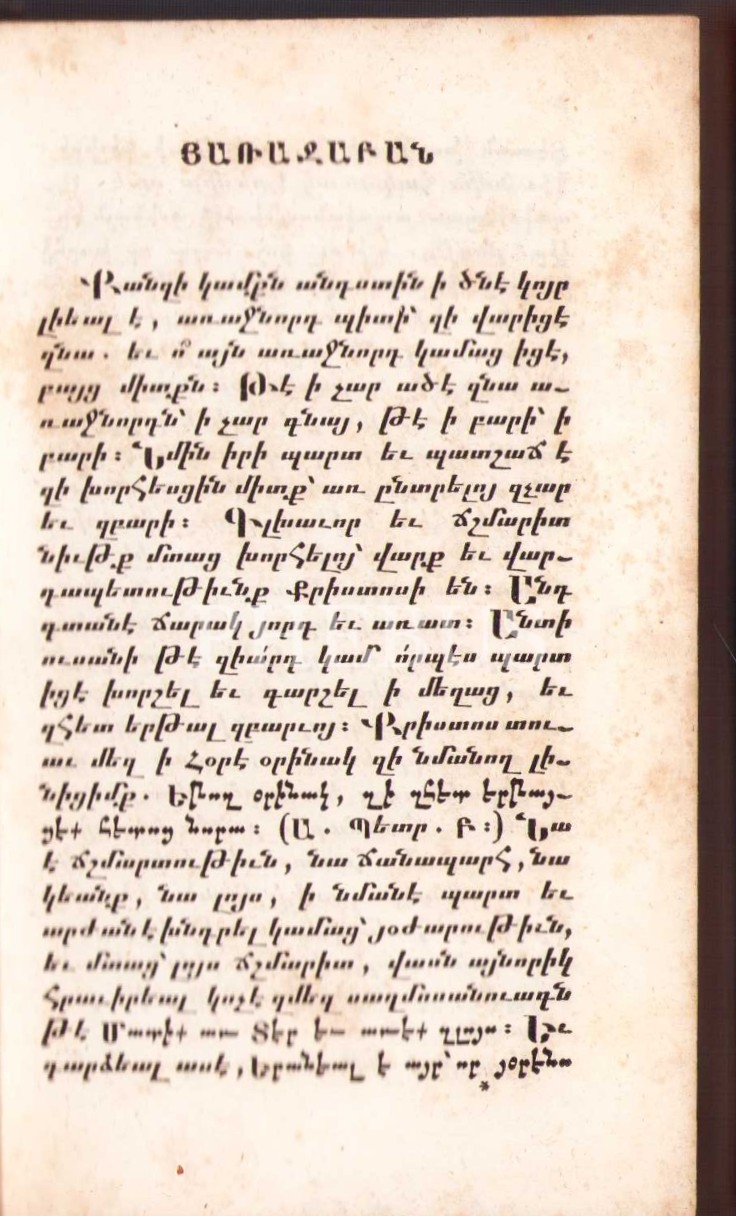 ՅԱՌԱՋԱԲԱՆ
Քանզի կամքն անդստին ի ծնէ կոյր
լիեալ է, առաջնորդ պիտի՝ զի վարիցէ
զնա. եւ ո՞ այն առաջնորդ կամաց իցէ,
բայց միտքն։ Թէ ի չար ածէ զնա ա֊
ռաջնորդն՝ ի չար գնայ, թէ ի բարի՝ ի
բարի։ Ապմին իրի պարտ եւ պատշաճ է
զի խորհեսցին միտք՝ առ ընտրելոյ զչար
եւ զբարի։ Գլխաւոր եւ ճշմարիտ
նիւթք մտաց խորհելոյ՝ վարք եւ վար֊
դապետութիւնք Քրիստոսի են։ Ընդ
գտանէ ճարակ յորդ եւ առատ։ Ընտի
ուսանի թէ զիա՛րդ կամ ո՛րպէս պարտ
իցէ խորշել եւ գարշել ի մեղաց, եւ
զհետ երթալ զբարւոյ։ Քրիստոս տու֊
աւ մեզ ի Հօրէ օրինակ զի նմանող լի֊
նիցիմք. Եթող օրինակ, զի զհետ երթայ֊
ցեք հետոց նորա։ (Ա. Պետր. Բ։) Նա
է ճշմարտութիւն, նա ճանապարհ, նա
կեանք, նա լոյս, ի նմանէ պարտ եւ
արժան է խնդրել կամաց՝ յօժարութիւն,
եւ մտաց՝ լոյս ճշմարիտ, վասն այնորիկ
հրաւիրեալ կոչէ զմեզ սաղմոսանուագն
թէ Մատիք առ Տէր եւ առէք զլոյս։ Եւ
դարձեալ ասէ, Երանեալ է այր՝ որ յօրէնս
*